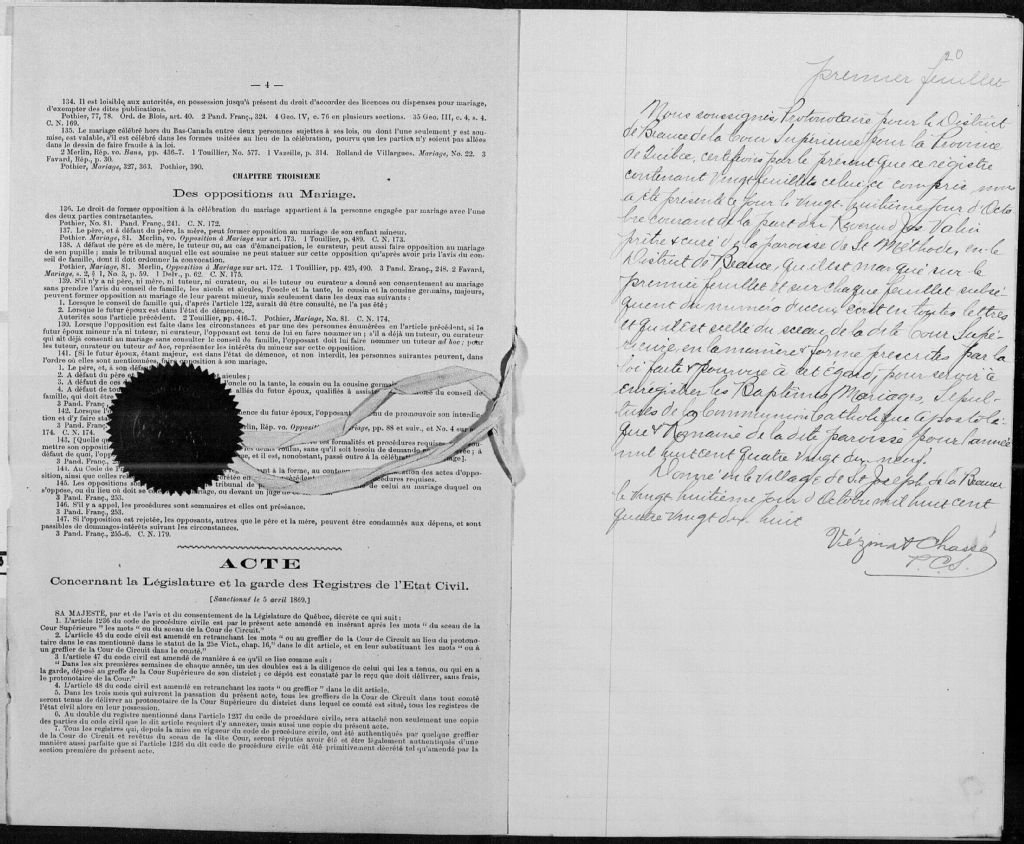 — 4 —
134. Il est loisible aux autorités, en possession jusqu'à présent du droit d'accorder des licences ou dispenses pour mariage,
d'exempter des dites publications.
Pothier, 77, 78. Ord. de Blois, art. 40. 2 Pand. Franç., 324. 4 Geo. IV, c. 76 en plusieurs sections. 35 Geo. III, c. 4, s. 4.
C. N. 169.
135. Le mariage célébré hors du Bas-Canada entre deux personnes sujettes à ses lois, ou dont l'une seulement y est sou-
mise, est valable, s'il est célébré dans les formes usitées au lieu de la célébration, pourvu que les parties n'y soient pas allées
dans le dessin de faire fraude à la loi.
2 Merlin, Rép. vo. Bans, pp. 436-7. 1 Touillier, No. 577. 1 Vazeille, p. 314. Rolland de Villargues. Mariage, No. 22. 3
Favard, Rép., p. 30.
Pothier, Mariage, 327, 363. Pothier, 390.
CHAPITRE TROISIEME
Des oppositions au Mariage.
136. Le droit de former opposition à la célébration du mariage appartient à la personne engagée par mariage avec l'une
des deux parties contractantes.
Pothier, No. 81. Pand. Franç., 241. C. N. 172.
137. Le père, et à défaut du père, la mère, peut former opposition au mariage de son enfant mineur.
Pothier, Mariage, 81. Merlin, vo. Opposition à Mariage sur art. 173. 1 Touillier, p. 489. C. N. 173.
138. A défaut de père et de mère, le tuteur ou, au cas d'émancipation, le curateur, peut aussi faire opposition au mariage
de son pupille; mais le tribunal auquel elle est soumise ne peut statuer sur cette opposition qu'après avoir pris l'avis du con-
seil de famille, dont il doit ordonner la convocation.
Pothier, Mariage, 81. Merlin, Opposition à Mariage sur art. 172. 1 Touillier, pp. 425, 490. 3 Pand. Franç., 248. 2 Favard,
Mariage, s. 2, § 1, No. 3, p. 59. 1 Delv., p. 62. C. N. 175.
139. S'il n'y a ni père, ni mère, ni tuteur, ni curateur, ou si le tuteur ou curateur a donné son consentement au mariage
sans prendre l'avis du conseil de famille, les aïeuls et aïeules, l'oncle et la tante, le cousin et la cousine germains, majeurs,
peuvent former opposition au mariage de leur parent mineur, mais seulement dans les deux cas suivants :
1. Lorsque le conseil de famille qui, d'après l'article 122, aurait dû être consulté, ne l'a pas été;
2. Lorsque le futur époux est dans l'état de démence.
Autorités sous l'article précédent. 2 Touillier, pp. 416-7. Pothier, Mariage, No. 81. C. N. 174.
130. Lorsque l'opposition est faite dans les circonstances et par une des personnes énumérées en l'article précédent, si le
futur époux mineur n'a ni tuteur, ni curateur, l'opposant est tenu de lui en faire nommer un; s'il a déjà un tuteur, ou curateur
qui ait déjà consenti au mariage sans consulter le conseil de famille, l'opposant doit lui faire nommer un tuteur ad hoc; pour
les tuteur, curateur ou tuteur ad hoc, représenter les intérêts du mineur sur cette opposition.
141. [Si le futur époux, étant majeur, est dans l'état de démence, et non interdit, les personnes suivantes peuvent, dans
l'ordre où elles sont mentionnées, faire opposition à son mariage.
1. Le père, et, à son défaut
2. A défaut du père aïeules ;
3. A défaut de ces l'oncle ou la tante, la cousin ou la cousine germains
4. A défaut de tou alliés du futur époux, qualifiés à assister du conseil de
famille, qui doit être
3 Pand. Franç.,
142. Lorsque l' du futur époux, l'opposant de promouvoir son interdic-
tion et d'y faire sta
lin, Rép. vo. pp. 88 et suiv., et No. 4 sur
174. C. N. 174.
143. [Quelque les formalités et procédures requises
mettre son opposition sans qu'il soit besoin de demande
défaut de quoi, l'oppos et il est, nonobstant, passé outre à la célébration
3 Pand. Franç.,
144. Au Code de P à la forme, au contenu des actes d'oppo-
sition, ainsi que celles rel procédures requises.
145. Les oppositions so de celui au mariage duquel on
s'oppose, ou du lieu où doit se célébration du mariage, ou devant un juge de
3 Pand. Franç., 253.
146. S'il y a appel, les procédures sont sommaires et elles ont préséance.
3 Pand. Franç., 253.
147. Si l'opposition est rejetée, les opposants, autres que le père et la mère, peuvent être condamnés aux dépens, et sont
passibles de dommages-intérêts suivant les circonstances.
3 Pand. Franç., 255-6. C. N. 179.
ACTE
Concernant la Législature et la garde des Registres de l'Etat Civil.
[Sanctionné le 5 avril 1869.]
SA MAJESTÉ, par et de l'avis et du consentement de la Législature de Québec, décrète ce qui suit :
1. L'article 1236 du code de procédure civile est par le présent acte amendé en insérant après les mots " du sceau de la
Cour Supérieure " les mots " ou du sceau de la Cour de Circuit."
2. L'article 45 du code civil est amendé en retranchant les mots " ou au greffier de la Cour de Circuit au lieu du protono-
taire dans le cas mentionné dans le statut de la 25e Vict., chap. 16," dans le dit article, et en leur substituant les mots " ou à
un greffier de la Cour de Circuit dans le comté."
3 L'article 47 du code civil est amendé de manière à ce qu'il se lise comme suit :
" Dans les six premières semaines de chaque année, un des doubles est à la diligence de celui qui les a tenus, ou qui en a
la garde, déposé au greffe de la Cour Supérieure de son district; ce dépôt est constaté par le reçu que doit délivrer, sans frais,
le protonotaire de la Cour."
4. L'article 48 du code civil est amendé en retranchant les mots " ou greffier " dans le dit article.
5. Dans les trois mois qui suivront la passation du présent acte, tous les greffiers de la Cour de Circuit dans tout comté
seront tenus de délivrer au protonotaire de la Cour Supérieure du district dans lequel ce comté est situé, tous les registres de
l'état civil alors en leur possession.
6. Au double du registre mentionné dans l'article 1237 du code de procédure civile, sera attaché non seulement une copie
des parties du code civil que le dit article requiert d'y annexer, mais aussi une copie du présent acte.
7. Tous les registres qui, depuis la mise en vigueur du code de procédure civile, ont été authentiqués par quelque greffier
de la Cour de Circuit et revêtus du sceau de la dite Cour, seront réputés avoir été et être légalement authentiqués d'une
manière aussi parfaite que si l'article 1236 du dit code de procédure civile eût été primitivement décrété tel qu'amendé par la
section première du présent acte.
20
premier feuillet
Nous soussignés, Protonotaire pour le District
de Beauce de la Cour Supérieure pour la Province
de Québec, certifions par le présent que ce registre
contenant Vingt feuillets celui-ci compris nous
a été présenté ce jour le Vingt-huitième jour d'Octo
bre courant de la part du Reverend Jos. Valin
prêtre & curé de la paroisse de St Méthode, en le
District de Beauce, qu'il est marqué sur le
premier feuillet et sur chaque feuillet subsé
quent du numero d'iceux écrit en toutes lettres
et qu'il est scellé du sceau de la dite Cour Supé
rieure, en la manière & forme prescrites par la
loi faite & pourvue à cet égard, pour servir à
enregistrer les Baptêmes, Mariages, Sépul-
tures de la Communion Catholique Apostoli-
que & Romaine de la dite paroisse pour l'année
mil huit cent quatre vingt dix neuf.
Donné en le village de St Joseph de la Beauce
le vingt huitieme jour d'Octobre mil huit cent
quatre vingt dix huit
Vézina & Chassé
P. C. S.